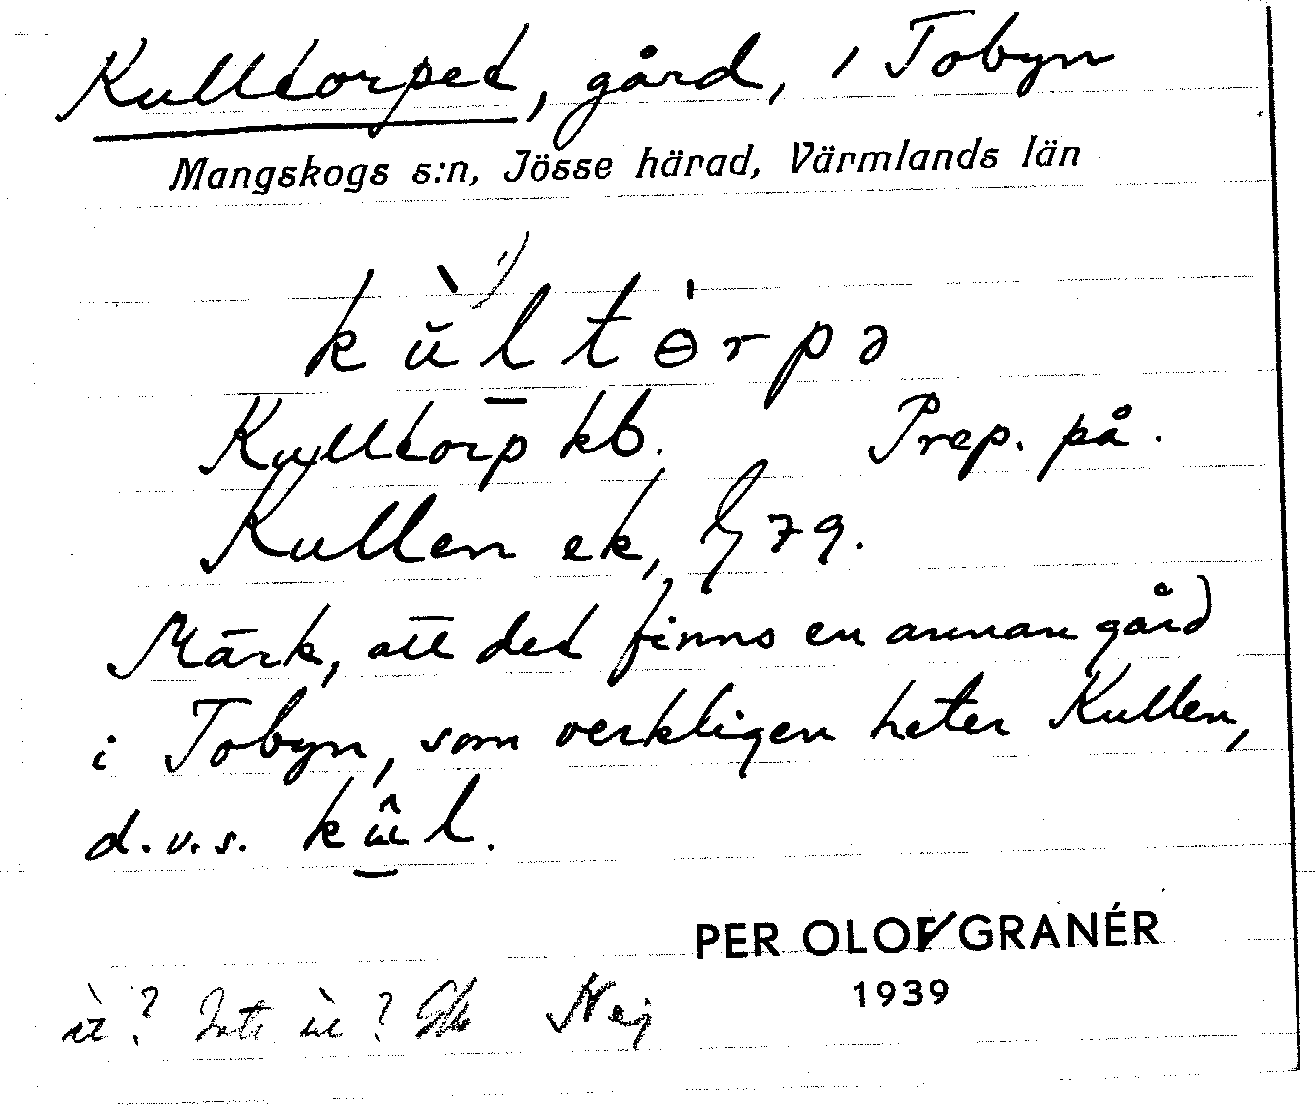 Kulltorpet, gård, i Tobyn
Mangskogs s:n, Jösse härad, Värmlands län
1)
kùltɵrpə
Kulltorp kb. Prep. på.
Kullen ek, 79.
Märk, att det finns en annan gård
i Tobyn, som verkligen heter Kullen,
d.v.s. kûl.
PER OLOF GRANÉR
1939
Inte Nej